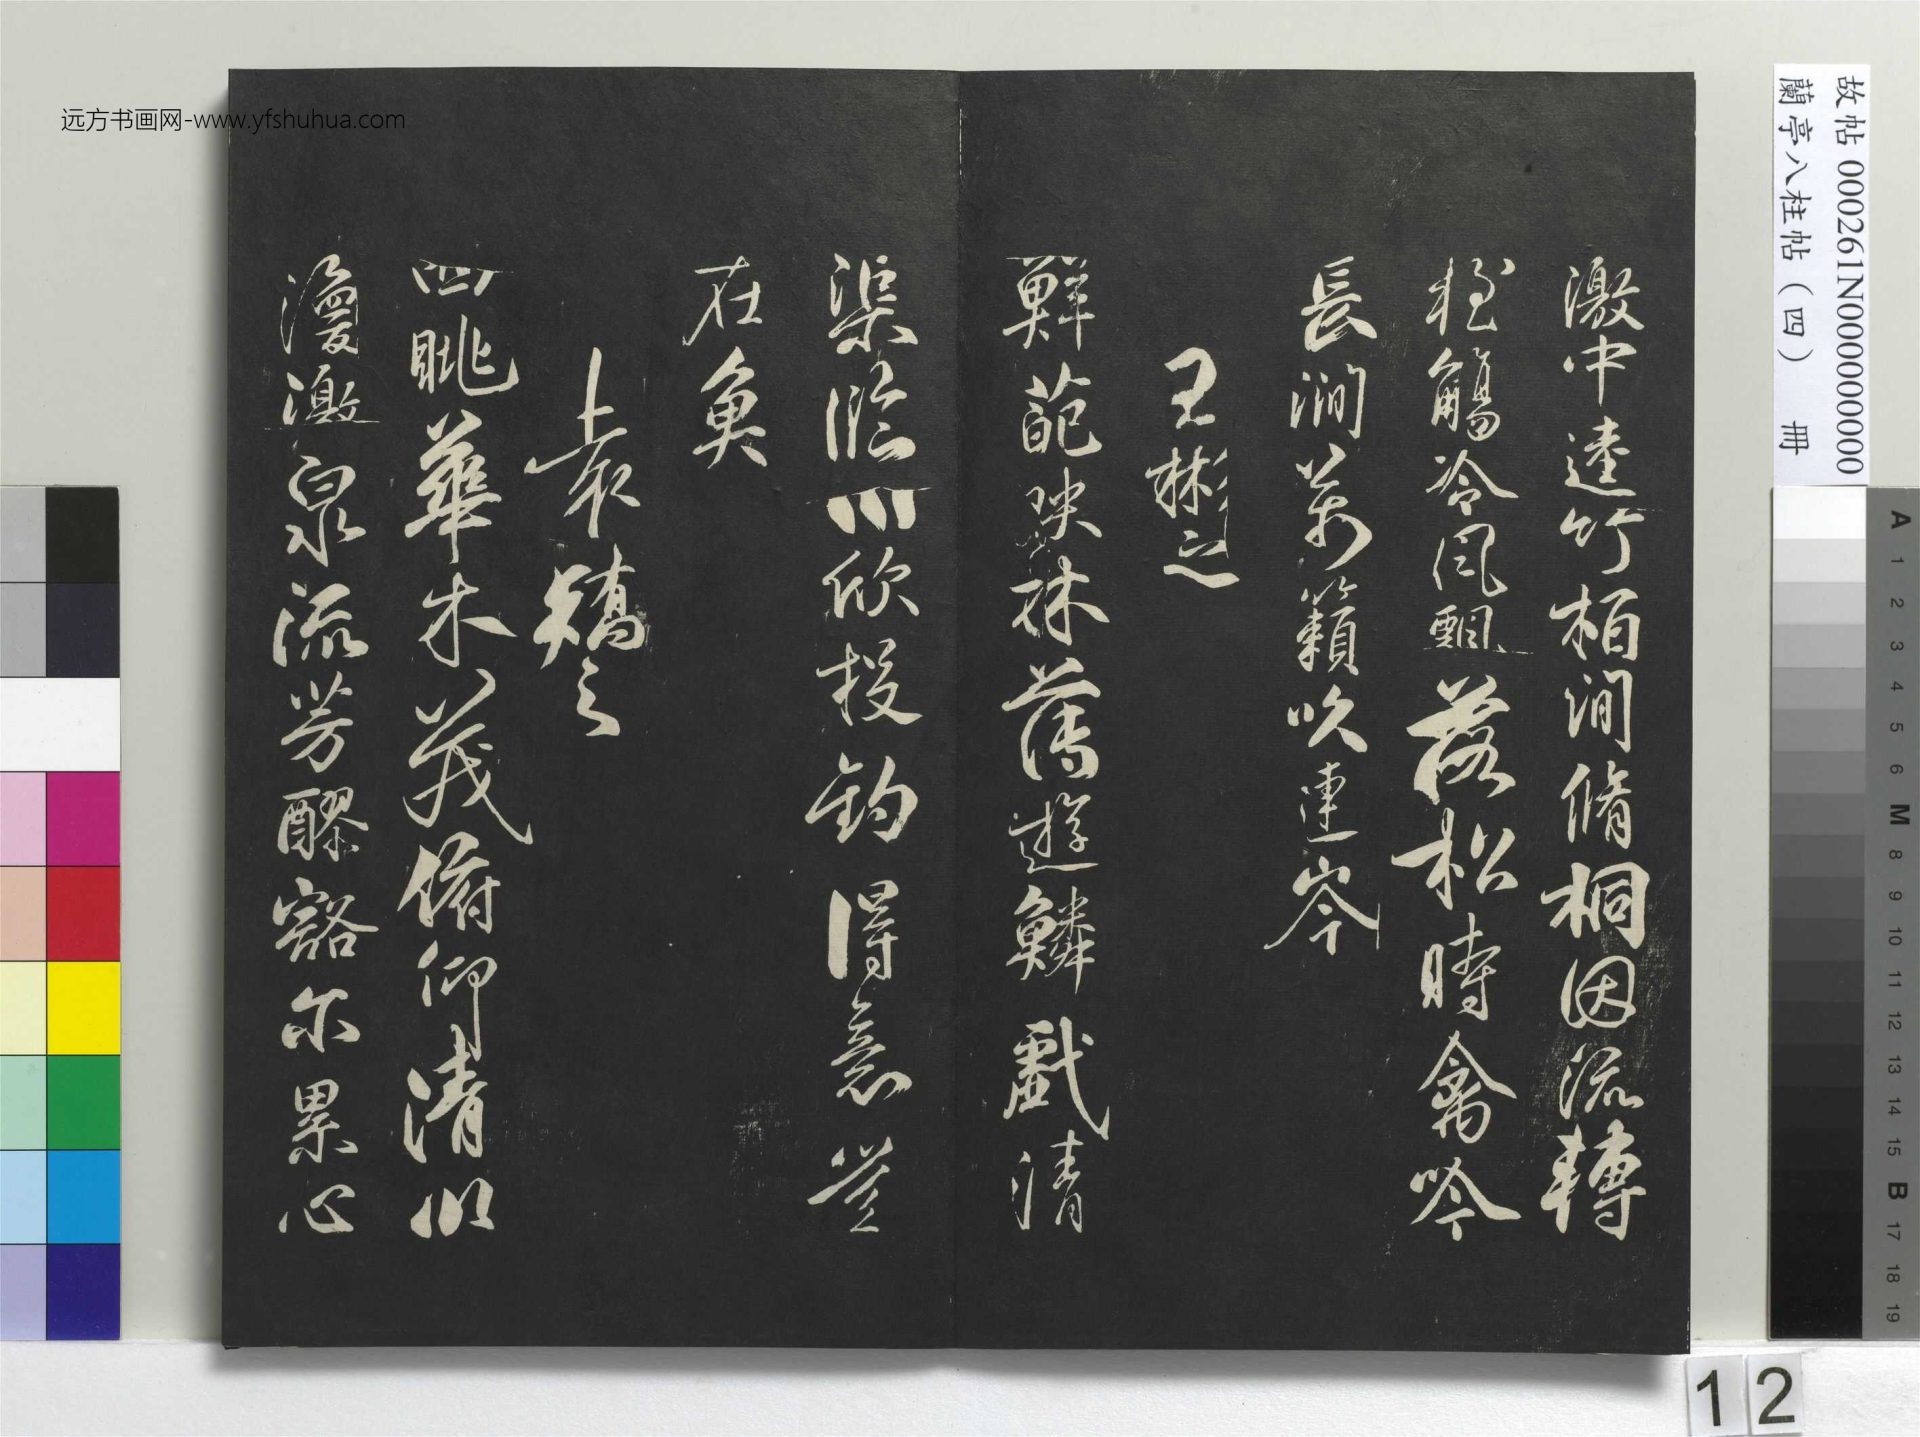 激中逵竹栢澗脩桐因流轉
輕觴冷風飄落松時禽吟
長澗萬籟吹連岑
王彬之
鮮葩映林薄遊鱗戲清
渠臨川欣投釣得意豈
在魚
袁矯之
四眺華木茂俯仰清川
漫激泉流芳醪豁尔累心
故帖 000261N000000000
蘭亭八柱帖(四) 冊
远方书画网-www.yfshuhua.com
A 1 2 3 4 5 6 M 8 9 10 11 12 13 14 15 B 17 18 19
12